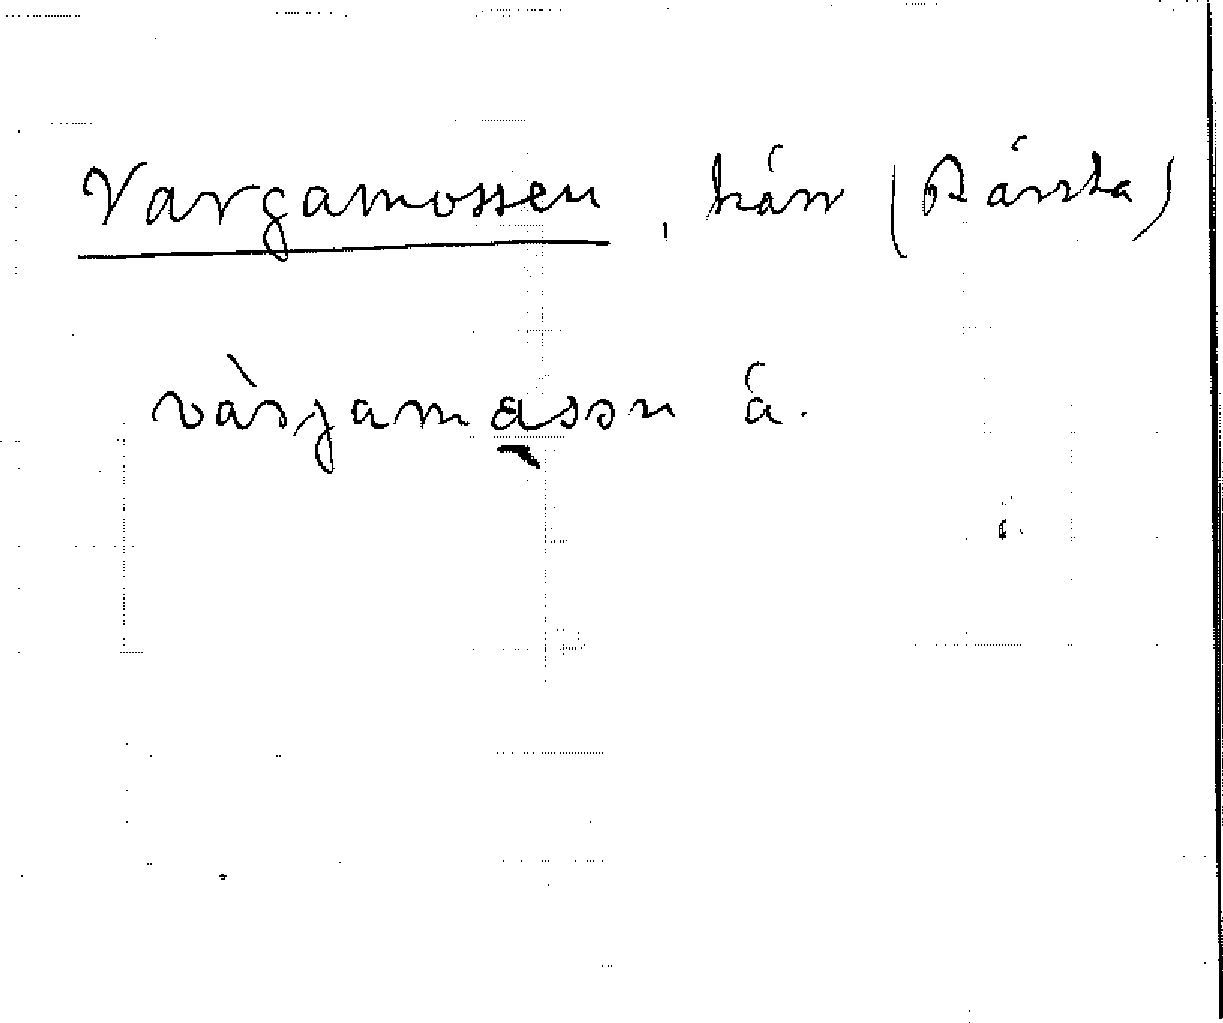 Vargamossen, kärr (Rårsta)
vàrgamassn å.